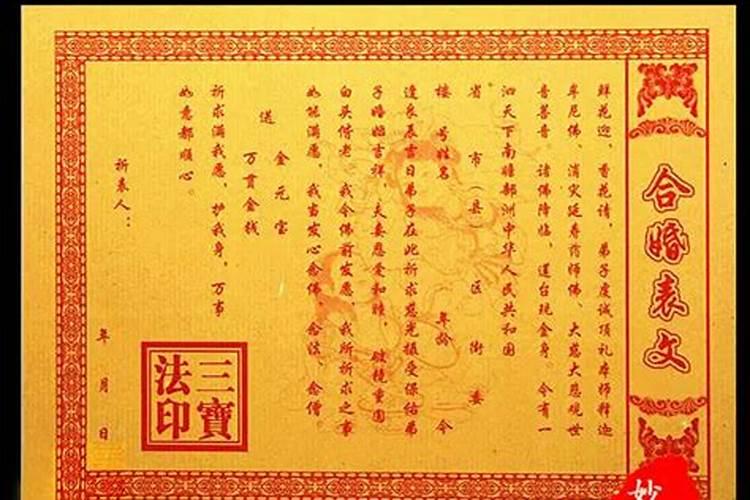 合婚表文
鲜花迎，香花请，弟子虔诚顶礼本师释迦
牟尼佛、消灾延寿药师佛、大慈大悲观世
音菩音。诸佛降临，莲台现金身。今有一
泗天下南赡部洲中华人民共和国
省 市（县） 区 街 委
楼 号姓名 年龄 今
逢良辰吉日弟子在此祈求慈光摄受保佑弟
子婚姻吉祥，夫妻恩爱和睦，破镜重圆
白头偕老。我今佛前发愿，我所祈求之事
如能满愿，我当发心念佛、念法、念僧。
送 金元宝
万贯金钱
祈求满我愿，护我身，万事
如意都顺心。
祈表人：
年 月 日
三寶
法印
妙